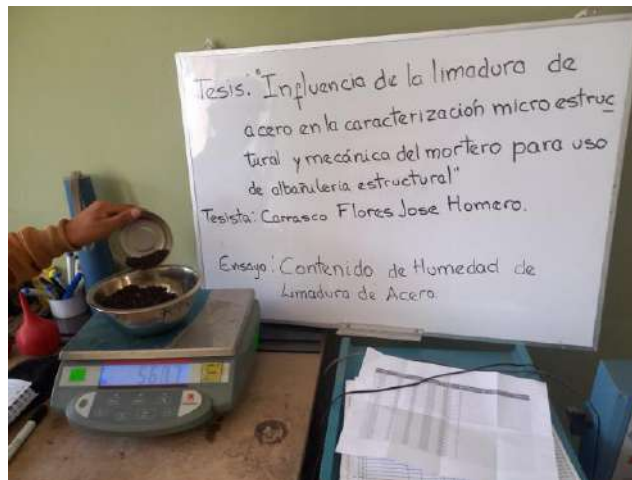 Tesis: "Influencia de la limadura de
acero en la caracterización micro estruc
tural y mecánica del mortero para uso
de albañuleria estructural"
Tesista: Carrasco Flores Jose Homero.
Ensayo: Contenido de Humedad de
Limadura de Acero.